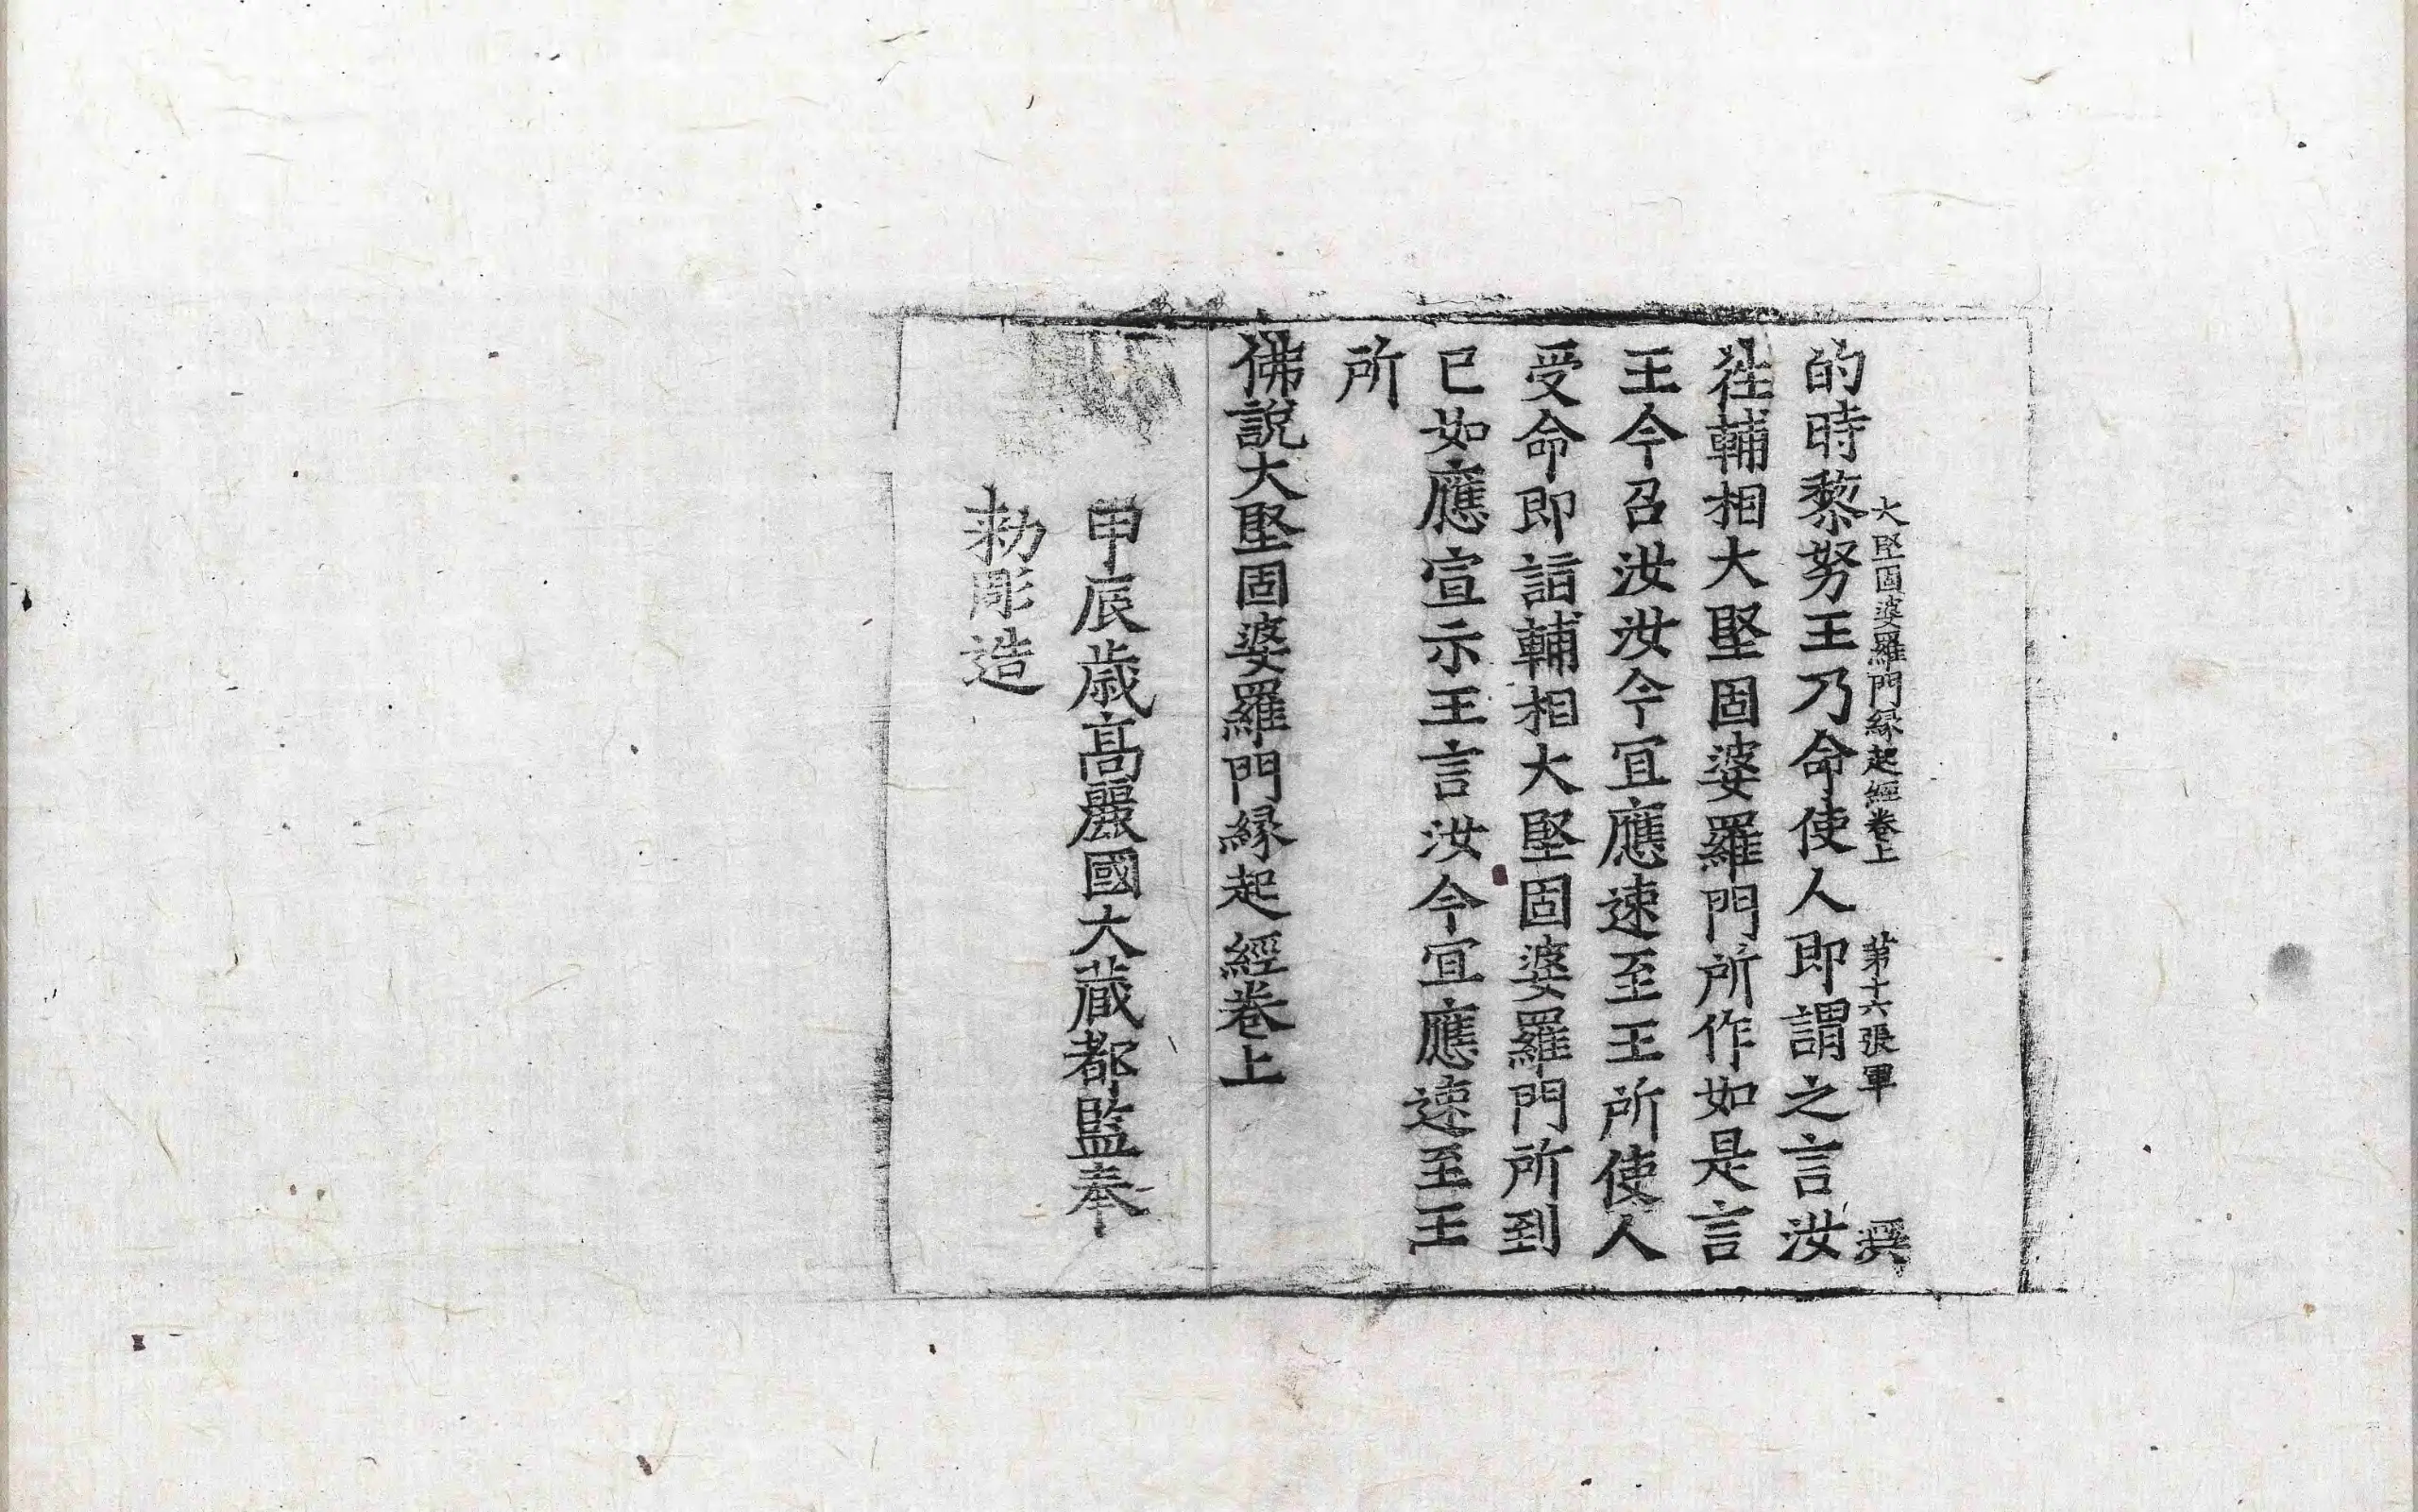 大堅固婆羅門緣起經卷上 第十六張 軍
的時黎努王乃命使人即謂之言汝
徃輔相大堅固婆羅門所作如是言
王今召汝汝今宜應速至王所使人
受命即詣輔相大堅固婆羅門所到
已如應宣示王言汝今宜應速至王
所
佛說大堅固婆羅門緣起經卷上
甲辰歲高麗國大藏都監奉
勅彫造